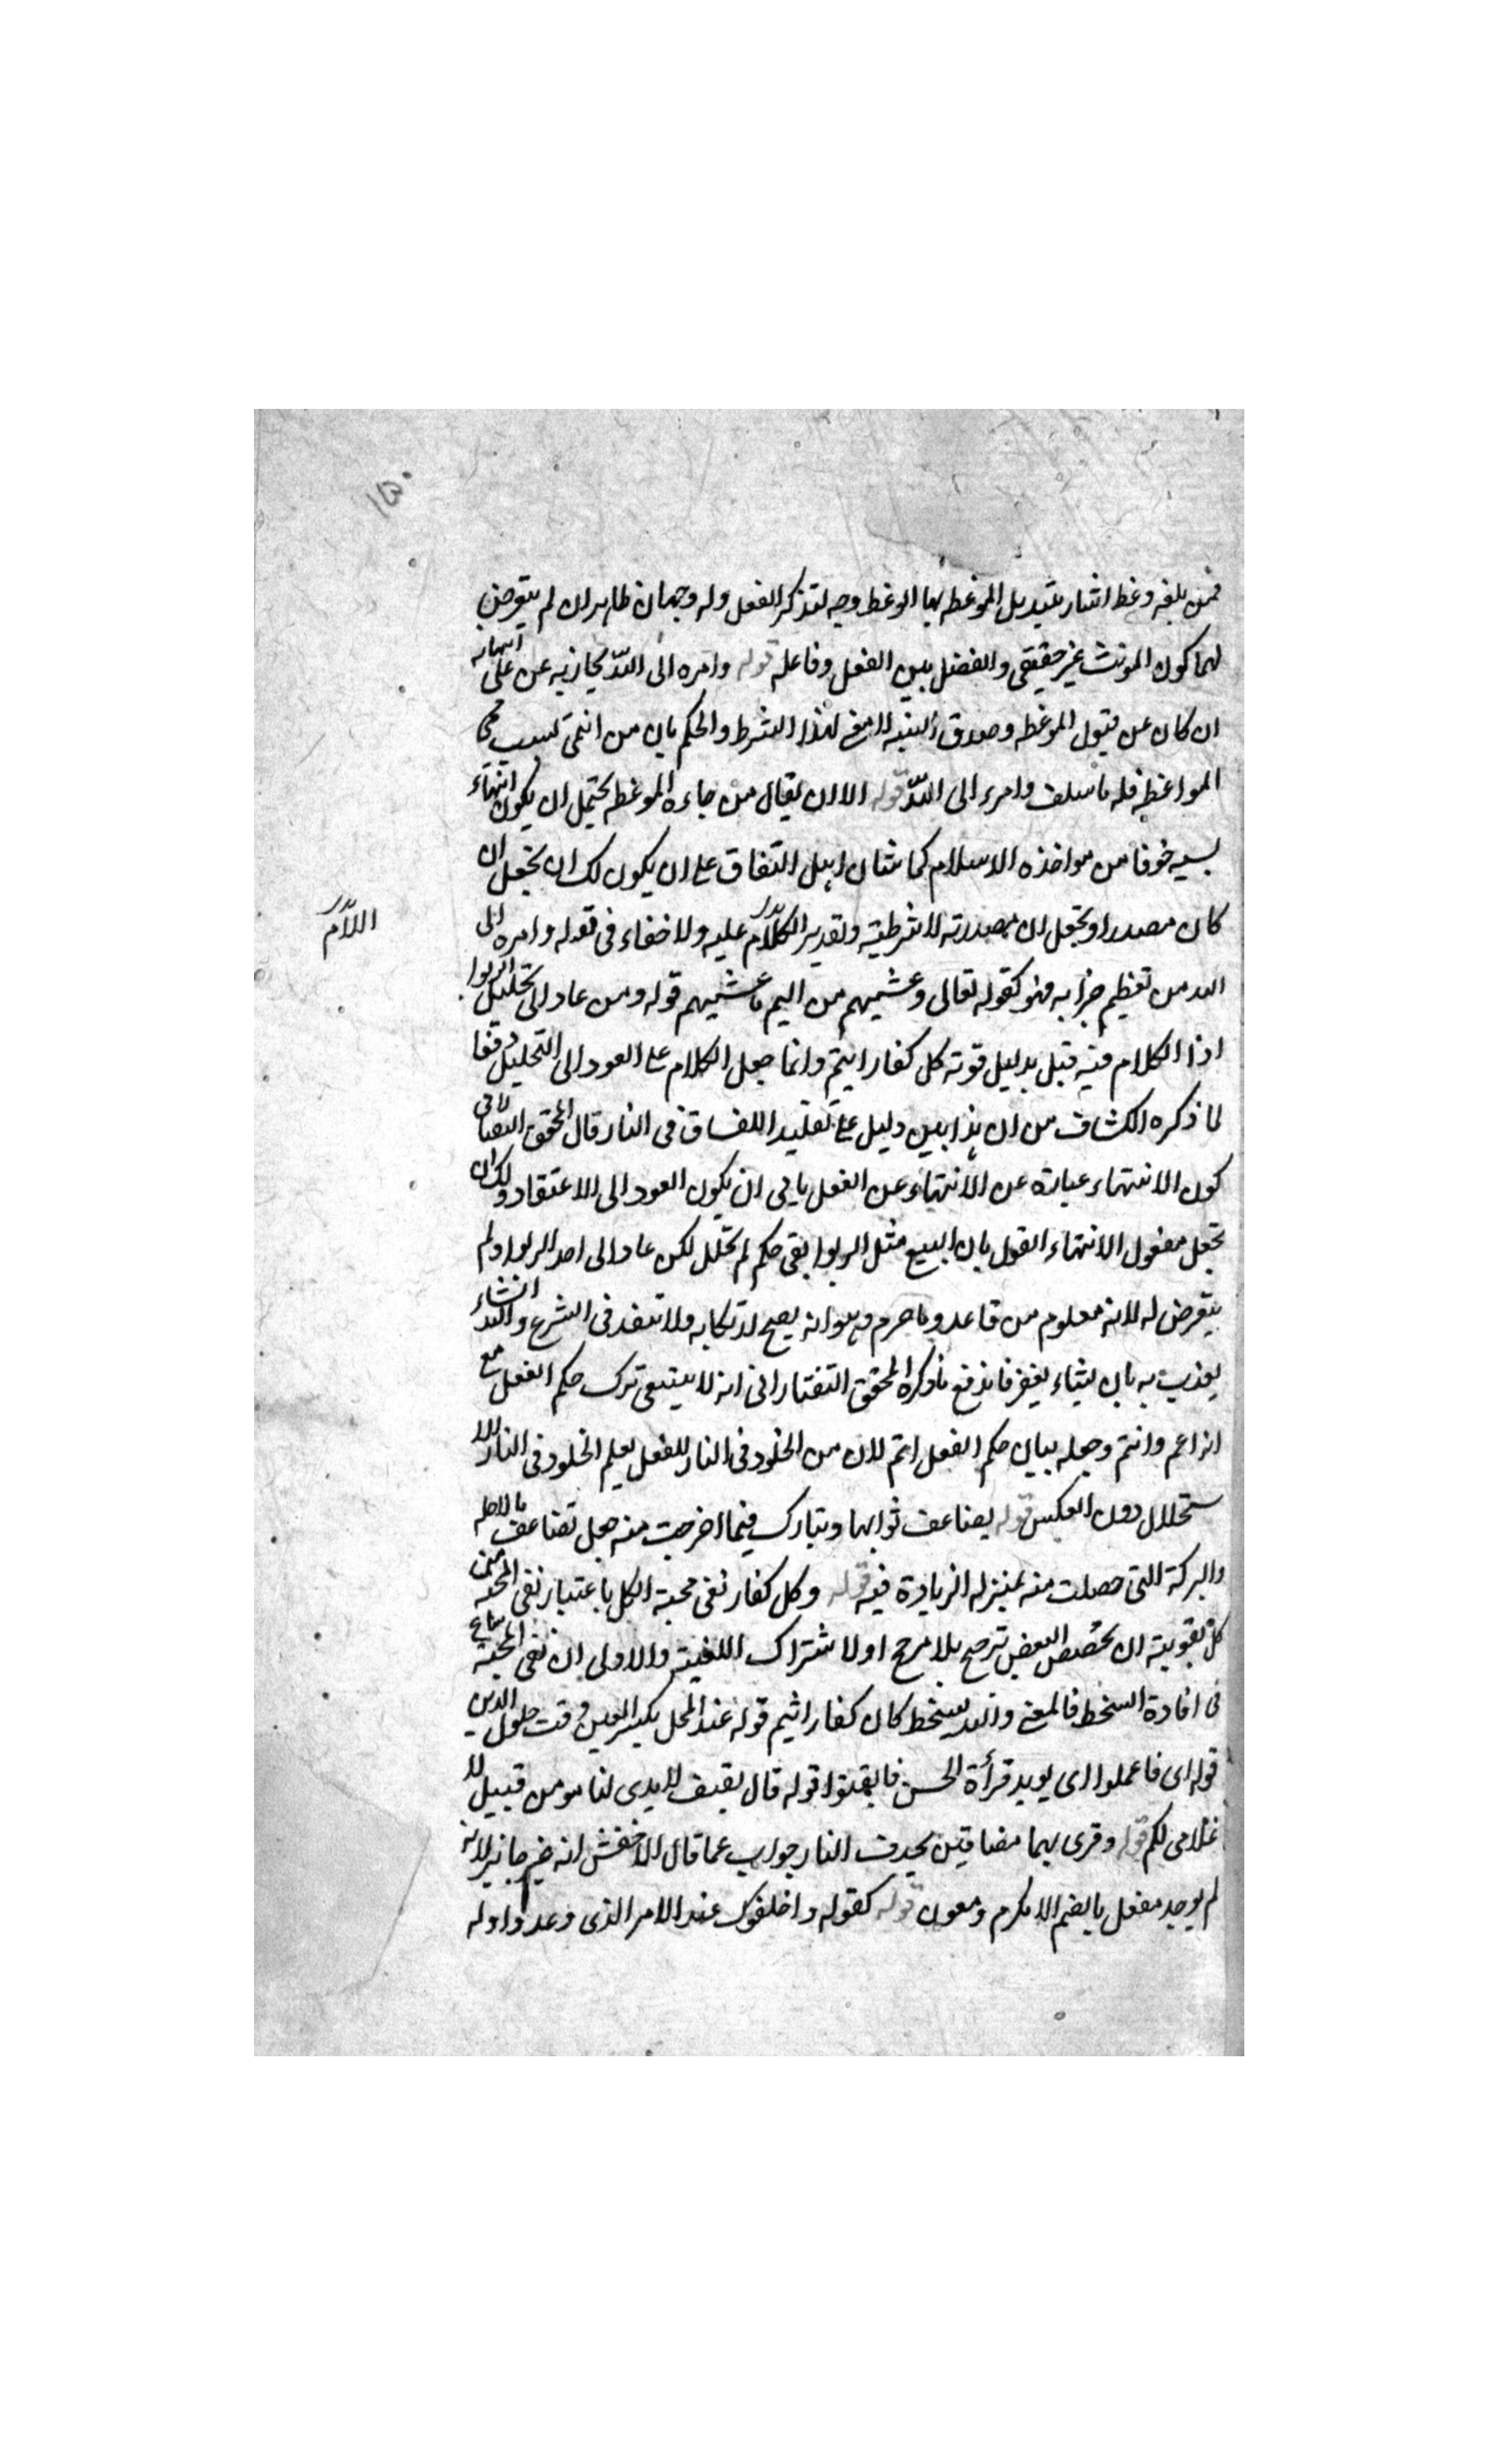 ١٥٠
فمن بلغه وعظ اشار بتبديل الموعظه بها الوعظ وجه لتذكر الفعل وله وجهان ظاهران لم يتعرض
لهما كون المونث غير حقيقى والفضل بين الفعل وفاعله قوله وامره الى الله يجازيه عن على انتهائه
ان كان عن قبول الموعظه وصدق النيه لا مع لهذا الشرط والحكم بان من انتهى لسبب
المواعظ فله ما سلف وامره الى الله قوله الا ان يقال من جاءه الموعظه يحتمل ان يكون انتهاء
لسيه خوفا من مواخذه الاسلام كما شان اهل النفاق على ان يكون لك ان تجعل ان
كان مصدرا وتجعل ان مصدرته لا شرطيته وتقدير الكلام عليه ولا خفاء فى قوله وامره الى
اللام
الله من تعظيم جزابه فهو كقوله تعالى وغشيهم من اليم ما غشيهم قوله ومن عاد الى تحليل الربوا
اذا الكلام فيه قبل بدليل قوته كل كفار اثيم وانما جعل الكلام على العود الى التحليل دفعا
لما ذكره الكشاف من ان هذا بين دليل على تخليد الفساق فى النار قال المحقق التفتازانى
كون الانتهاء عبارة عن الانتهاء عن الفعل يابى ان يكون العود الى الاعتقاد ولك ان
تجعل مفعول الانتهاء القول بان البيع مثل الربوا بقى حكم لم تحلل لكن عاد الى اخذ الربوا ولم
يتعرض له لانه معلوم من قاعده ما حرم وهو انه يصح ارتكابه ولا تنفذ فى الشرع والله انشاء
يعذب به بان يشاء يغفر فاندفع ما ذكره المحقق التفتازانى انه لا ينبغى ترك حكم الفعل مع
انه اعم وانتم وجعله بيان حكم الفعل اتم لان من الخلود فى النار للفعل يعلم الخلود فى النار للا
ستحلال دون العكس قوله يضاعف ثوابها ويبارك فيما اخرجت منه جعل تضاعف مالاجله
والبركة التى حصلت منه بمنزله الزيادة فيه قوله وكل كفار نفى محبة الكل باعتبار نفى المحبه عن
كل بقوينه ان تخصيص البعض ترجيح بلا مرجح او لاشتراك اللغيته والاولى ان نفى المحبه شاع
فى افادة السخط فالمعنى والله يسخط كان كفار اثيم قوله عند المحل بكسر العين وقت حلول الدين
قوله اى فاعملوا اى يويد قرأة الحسن فايقنوا قوله قال بقيف لا يدى لنا هو من قبيل لا
غلامى لكم قوله وقرى بهما مضافين بحذف التاء جواب عما قال الاخفش انه غير جائز لانه
لم يوجد مفعل بالضم الا مكرم ومعون قوله كقوله واخلفوك عند الامر الذى وعدوا وله